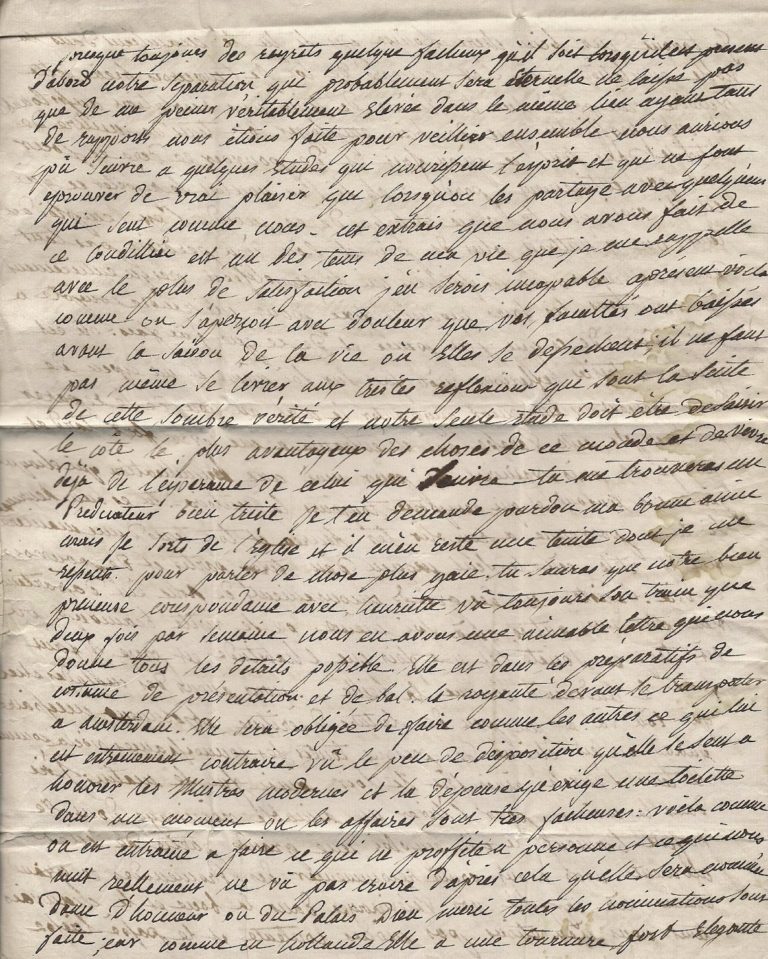 presque toujours des regrets quelque facheux qu'il soit lorsqu'il est present
d'abord notre separation qui probablement sera éternelle ne laisse pas
que de me peiner véritablement Elevée dans le même lieu ayant tant
de rapports nous étions faite pour veillier ensemble nous aurions
pû suivre a quelques Etudes qui nourrissent l'esprit et qui ne font
eprouver de vrai plaisir que lorsqu'on les partage avec quelqu'un
qui sent comme nous - cet extrais que nous avons fait de
ce Condillac est un des tems de ma vie que je me rappelle
avec le plus de satisfaction j'en serois incapable apresent voila
comme on s'aperçoit avec douleur que vos facultés ont baissées
avant la saison de la vie où Elles se depechent il ne faut
pas même se livrer aux tristes reflexions qui sont la suite
de cette sombre vérité et notre seule étude doit être de saisir
le côté le plus avantageux des choses de ce monde et de vivre
déjà de l'esperance de celui qui suivra - tu me trouveras un
Predicateur bien triste je t'en demande pardon ma bonne amie
mais je sorts de l'Eglise et il m'en reste une teinte dont je me
repents. pour parler de chose plus gaie tu sauras que notre bien
precieuse corespondance avec henriette vâ toujours son train que
deux fois par semaine nous en avons une aimable lettre que nous
donne tous les details possible Elle est dans les préparatifs de
costume de présentation et de bal. la royauté devant se transporter
a Amsterdam. Elle sera obligée de faire comme les autres ce qui lui
est extremement contraire vû le peu de disposition qu'elle se sent a
honorer les illustres modernes et la dépense qu'exige une toilette
dans un moment ou les affaires sont très facheuses : voila comme
on est entrainé a faire ce qui ne proffite a personne et ce qui nous
nuit reellement ne vâ pas croire d'après cela qu'elle sera nommée
Dame d'honneur ou du Palais Dieu merci toutes les nominations sont
faite, car comme en hollande Elle a une tournure fort Elegante